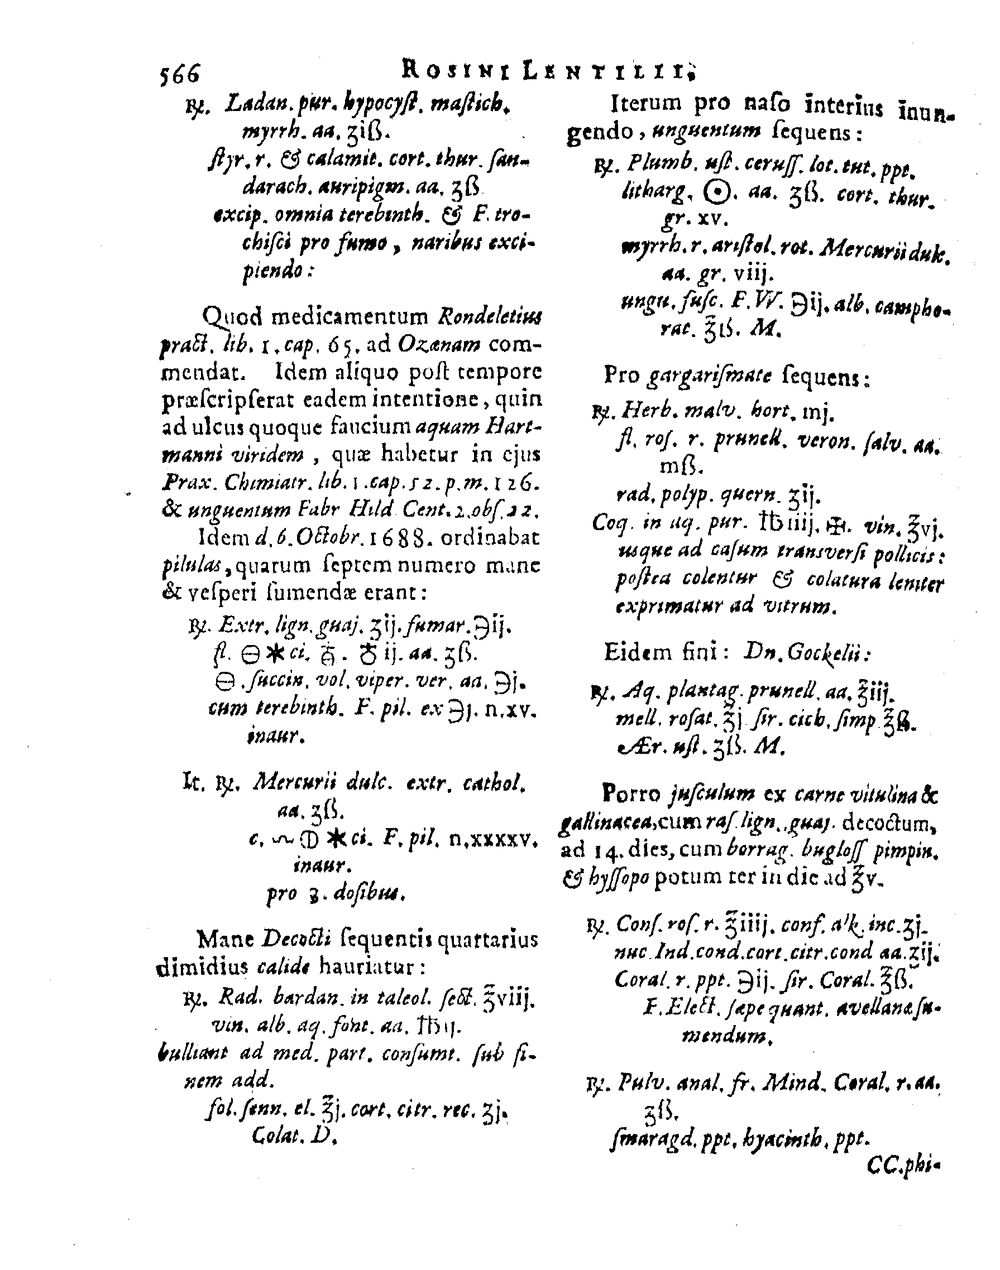 566 ROSINI LENTILII,
℞. Ladan. pur. hypocyſt. maſtich.
myrrh. aa. ʒiß.
ſtyr. r. & calamit. cort. thur. ſan-
darach. auripigm. aa. ʒß
excip. omnia terebinth. & F. tro-
chiſci pro fumo, naribus exci-
piendo:
Quod medicamentum Rondeletius
pract. lib. 1. cap. 65. ad Ozænam com-
mendat. Idem aliquo poſt tempore
præſcripſerat eadem intentione, quin
ad ulcus quoque faucium aquam Hart-
manni viridem, quæ habetur in ejus
Prax. Chimiatr. lib. 1. cap. 52. p. m. 126.
& unguentum Fabr Hild Cent. 2. obſ. 22.
Idem d. 6. Octobr. 1688. ordinabat
pilulas, quarum ſeptem numero mane
& veſperi ſumendæ erant:
℞. Extr. lign. guaj. ʒij. fumar. ℈ij.
fl. 🜔 ✱ ci. ♁ ij. aa. ʒß.
🜔. ſuccin. vol. viper. ver. aa. ℈j.
cum terebinth. F. pil. ex ℈j. n. xv.
inaur.
It. ℞. Mercurii dulc. extr. cathol.
aa. ʒß.
c. 🜕 ✱ ci. F. pil. n. xxxxv.
inaur.
pro 3. doſibus.
Mane Decocti ſequentis quartarius
dimidius calide hauriatur:
℞. Rad. bardan. in taleol. ſect. ℥viij.
vin. alb. aq. font. aa. ℔ij.
bulliant ad med. part. conſumt. ſub fi-
nem add.
fol. ſenn. el. ℥j. cort. citr. rec. ʒj.
Colat. D.
Iterum pro naſo interius inun-
gendo, unguentum ſequens:
℞. Plumb. uſt. ceruſſ. lot. tut. ppt.
litharg. ☉. aa. ʒß. cort. thur.
gr. xv.
myrrh. r. ariſtol. rot. Mercurii dulc.
aa. gr. viij.
ungu. fuſc. F. W. ℈ij. alb. campho-
rat. ℥iß. M.
Pro gargariſmate ſequens:
℞. Herb. malv. hort. mj.
fl. roſ. r. prunell. veron. ſalv. aa.
mß.
rad. polyp. quern. ʒij.
Coq. in aq. pur. ℔iiij. ✠. vin. ℥vj.
usque ad caſum transverſi pollicis:
poſtea colentur & colatura leniter
exprimatur ad vitrum.
Eidem fini: Dn. Gockelii:
℞. Aq. plantag. prunell. aa. ℥iij.
mell. roſat. ℥j ſir. cich. ſimp ℥ß.
Ær. uſt. ʒß. M.
Porro juſculum ex carne vitulina &
gallinacea, cum raſ. lign. guaj. decoctum,
ad 14. dies, cum borrag. bugloſſ pimpin.
& hyſſopo potum ter in die ad ℥v.
℞. Conſ. roſ. r. ℥iiij. conf. alk. inc. ʒj.
nuc Ind. cond. cort. citr. cond aa. ʒij.
Coral. r. ppt. ℈ij. ſir. Coral. ℥ß.
F. Elect. ſæpe quant. avellanæ ſu-
mendum.
℞. Pulv. anal. fr. Mind. Coral. r. aa.
ʒß.
ſmaragd. ppt. hyacinth. ppt.
CC. phi-